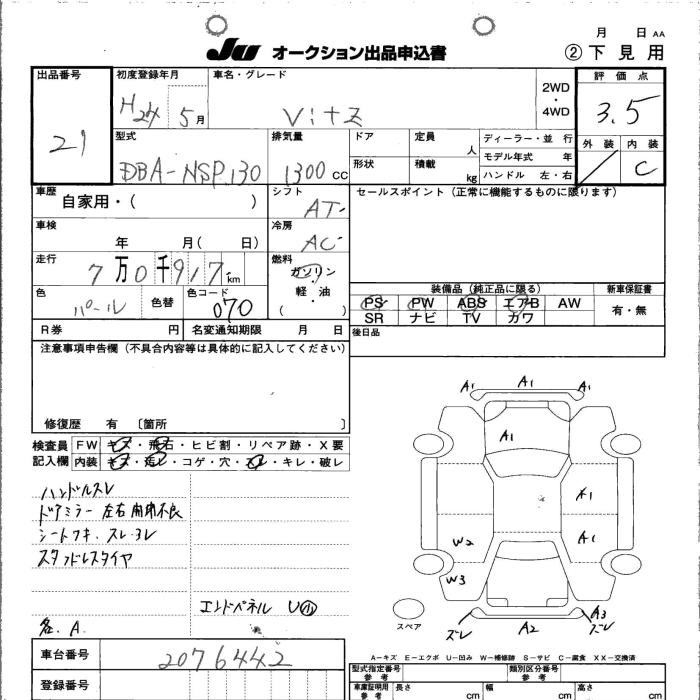 月 日 AA
JU オークション出品申込書 ② 下見用
出品番号 21
初度登録年月 H24 5月
車名・グレード Vitz
2WD・4WD
評価点 3.5
外装 内装 C
型式 DBA-NSP130
排気量 1300 CC
ドア 定員 人
形状 積載 kg
ディーラー・並行
モデル年式 年
ハンドル 左・右
車歴 自家用・( )
シフト AT
セールスポイント(正常に機能するものに限ります)
車検 年 月( 日)
冷房 AC
走行 7万0千917km
燃料 ガソリン・軽油 ( )
色 パール 色替 色コード 070
装備品(純正品に限る) 新車保証書
PS PW ABS エアB AW 有・無
SR ナビ TV カワ
R券 円 名変通知期限 月 日
後日品
注意事項申告欄(不具合内容等は具体的に記入してください)
修復歴 有 〔箇所 〕
検査員記入欄
FW キズ・飛石・ヒビ割・リペア跡・X要
内装 キズ・汚レ・コゲ・穴・スレ・キレ・破レ
ハンドルスレ
ドアミラー左右開閉不良
シート スレ・ヨレ
スタッドレスタイヤ
エンドパネル U小
各.A.
A1 A1 A1
A1
A1
A1
W2
W3
A2
A3
ズレ
ズレ
スペア
A－キズ E－エクボ U－凹み W－補修跡 S－サビ C－腐食 XX－交換済
車台番号 2076442
登録番号
型式指定番号 参考
類別区分番号 参考
車庫証明用 参考 長さ cm 幅 cm 高さ cm